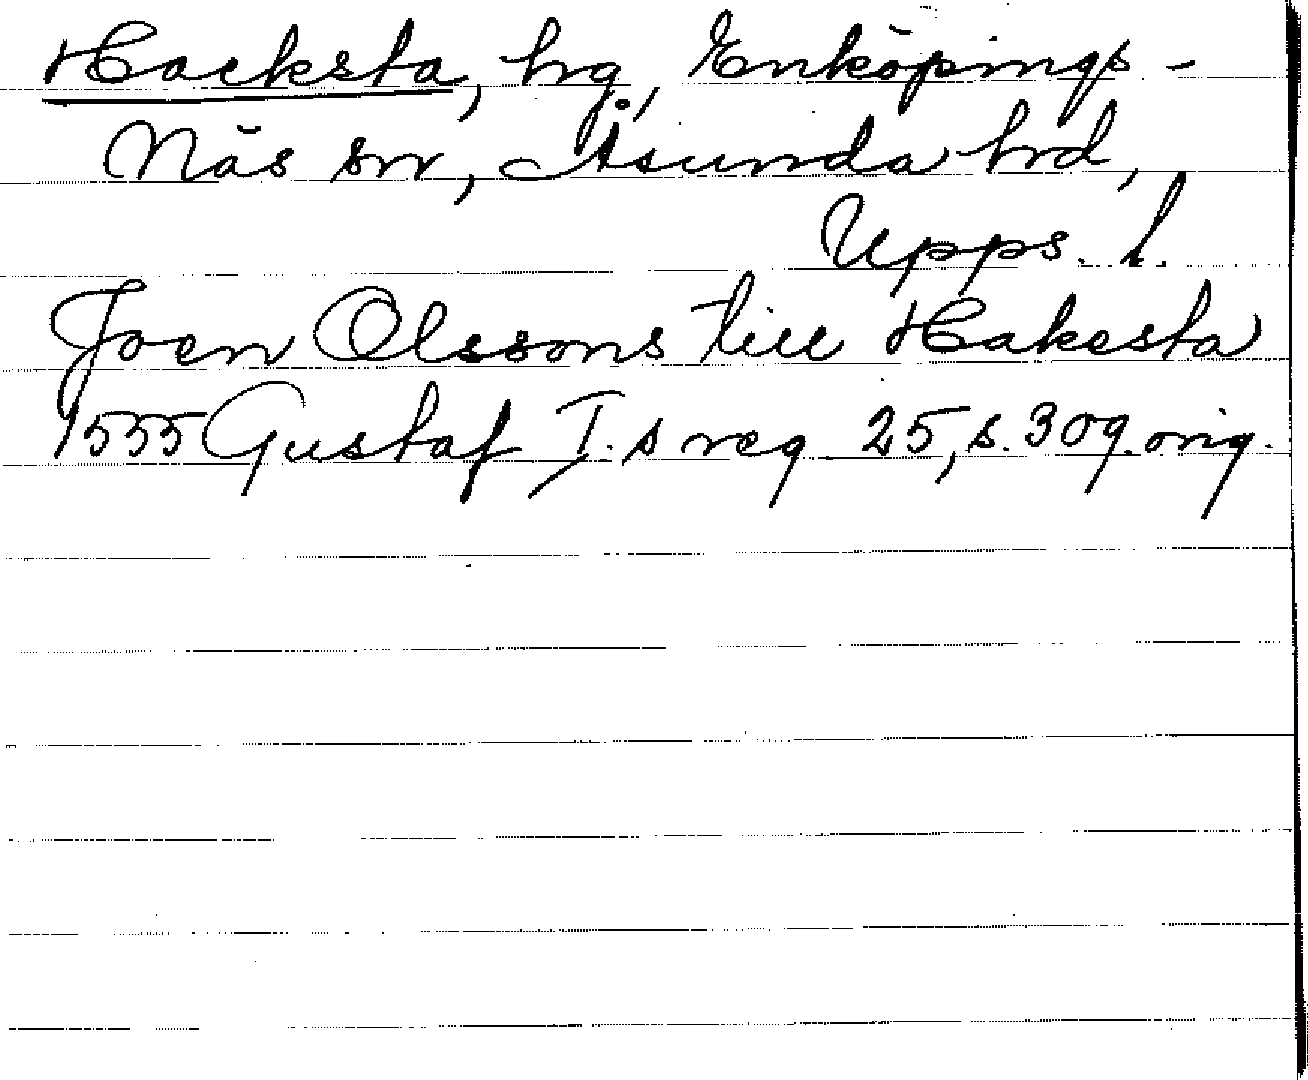 Hacksta, hg, Enköpings-
Näs sn, Åsunda hrd,
Upps. l.
Joen Olssons till Hakesta
1555 Gustaf I.s reg. 25, s. 309. orig.